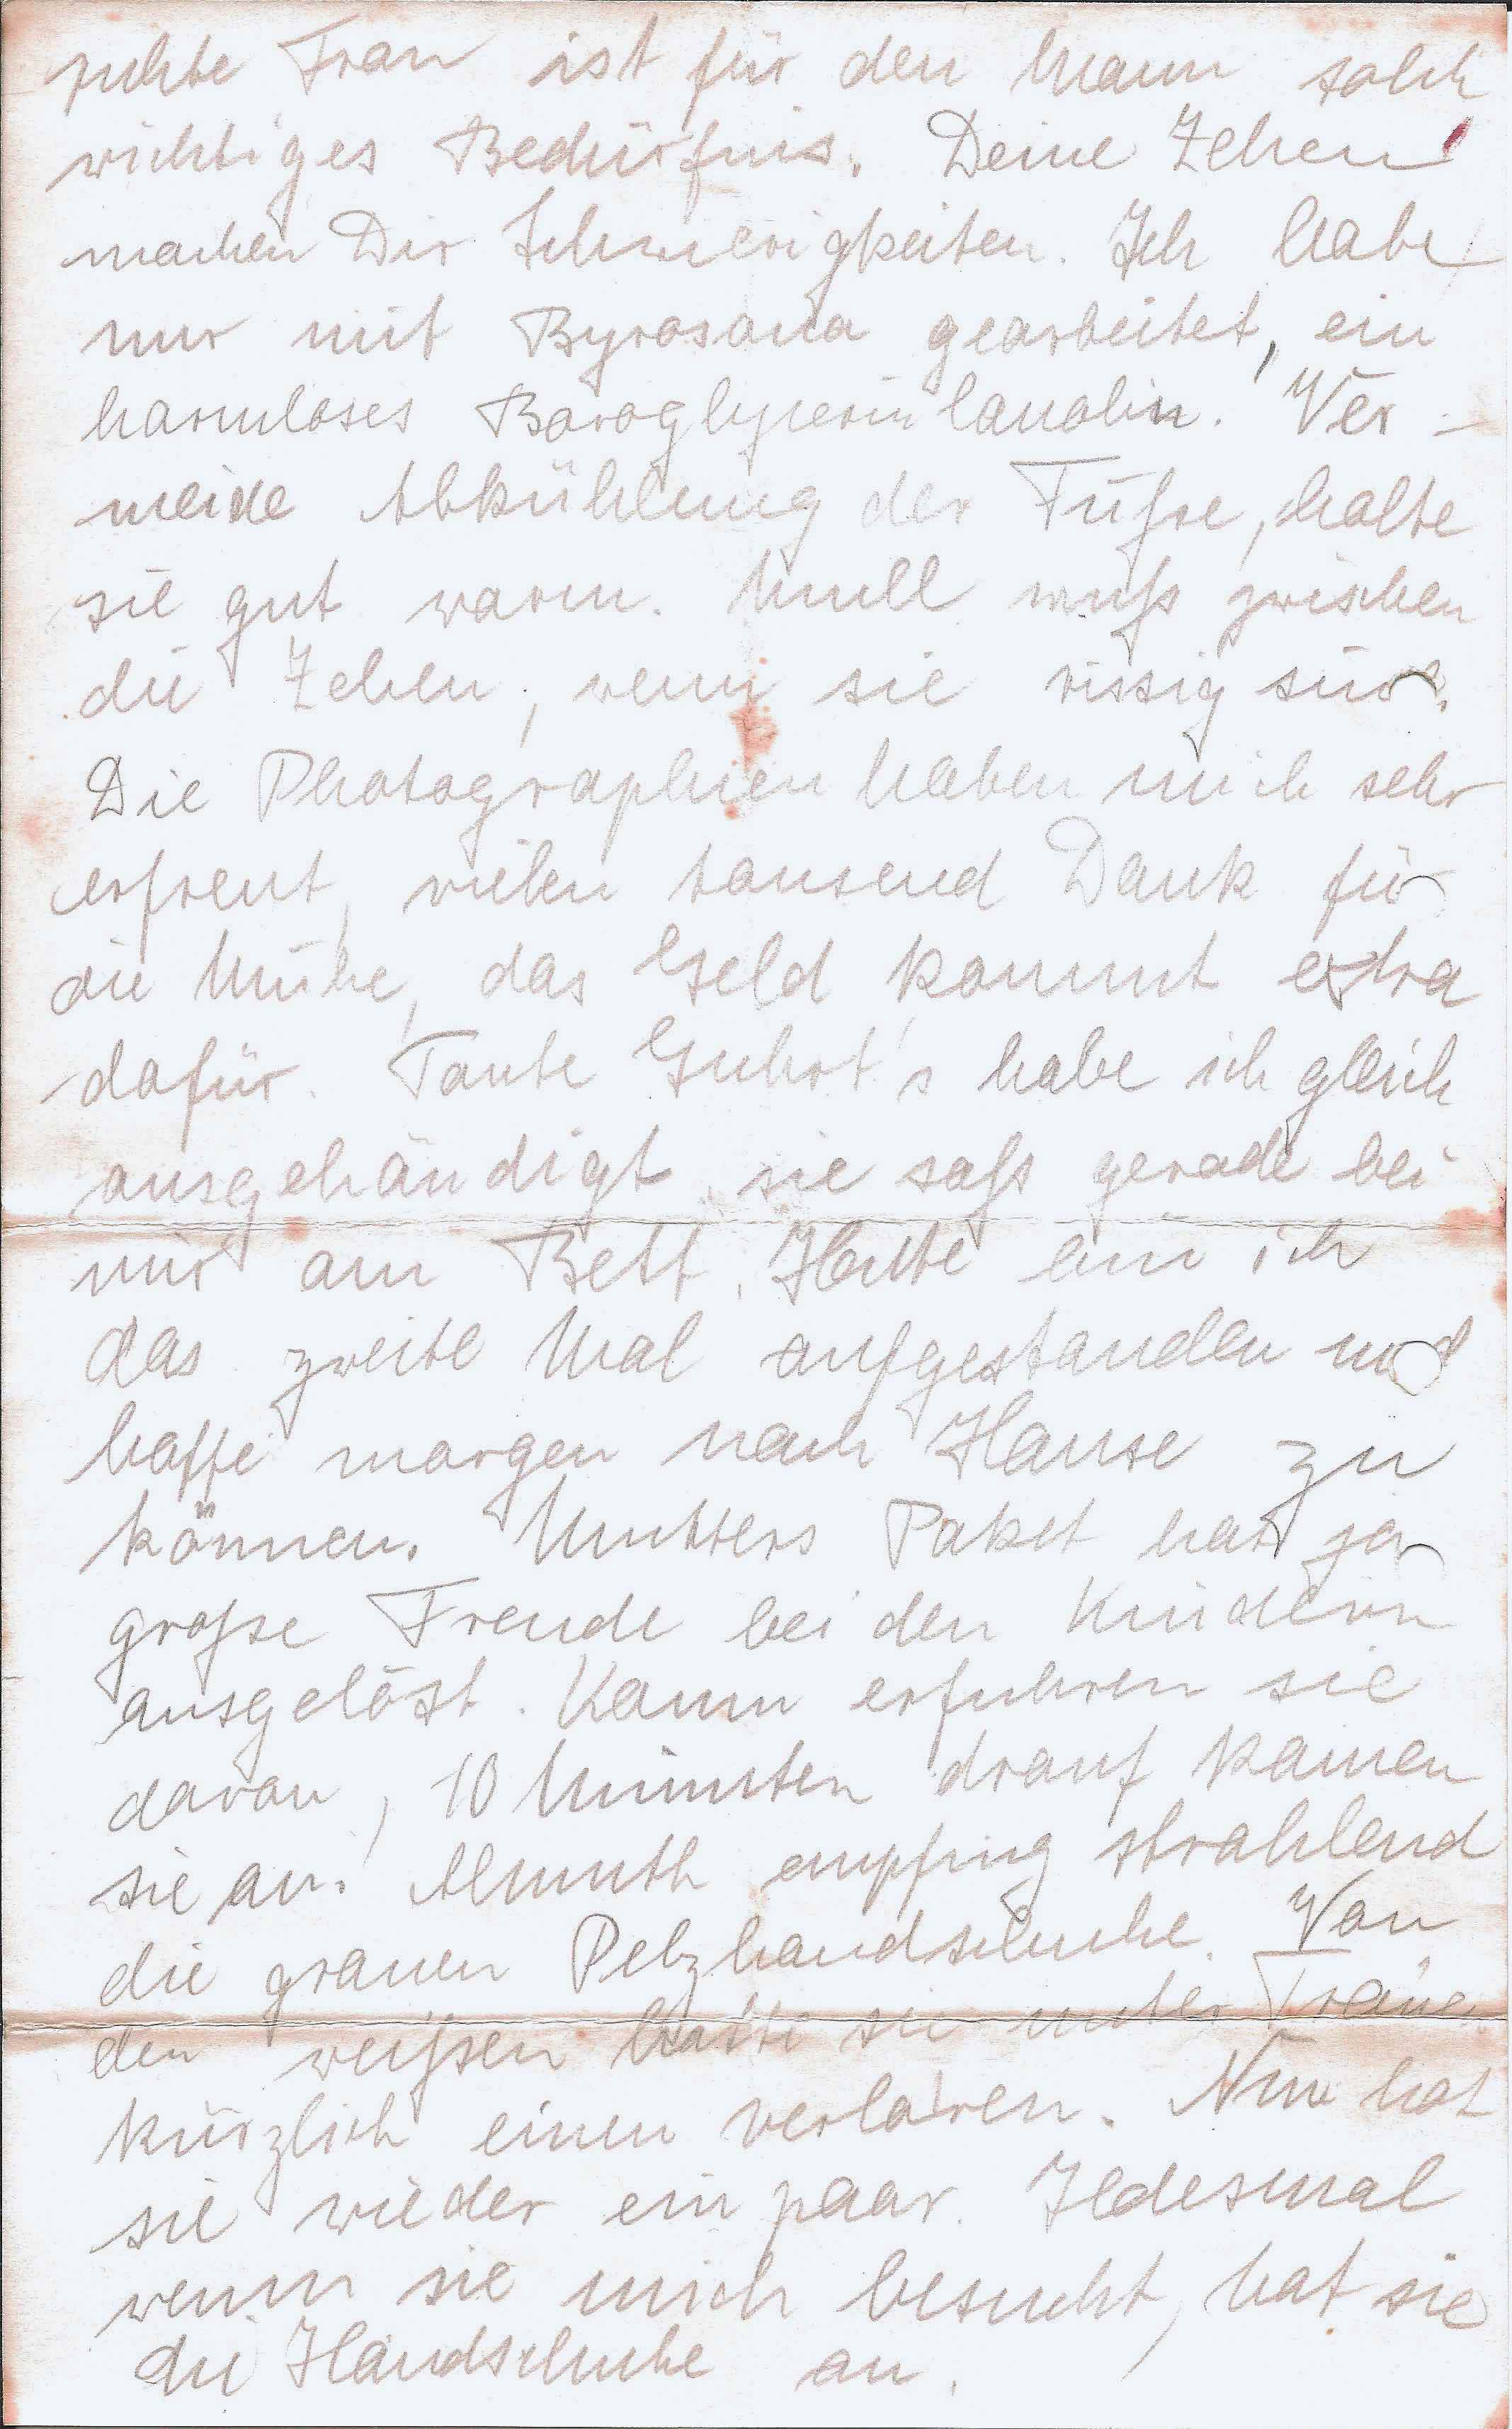 ruhte Frau ist für den Mann solch
wichtiges Bedürfnis. Deine Zehen
machen Dir Schwierigkeiten. Ich habe
nur mit Byrosana gearbeitet, ein
harmloses Boroglycerinlanolin. Ver-
meide Abkühlung der Füße, halte
sie gut warm. Mull muß zwischen
die Zehen, wenn sie rissig sind.
Die Photographien haben mich sehr
erfreut, vielen tausend Dank für
die Mühe, das Geld kommt extra
dafür. Tante Guhrt's habe ich gleich
ausgehändigt, sie saß gerade bei
mir am Bett. Heute bin ich
das zweite Mal aufgestanden und
hoffe morgen nach Hause zu
können. Mutters Paket hat ja
große Freude bei den Kindern
ausgelöst. Kaum erfuhren sie
davon, 10 Minuten drauf kamen
sie an. Almuth empfing strahlend
die grauen Pelzhandschuhe. Von
den weißen hatte sie unter Träne
kürzlich einen verloren. Nun hat
sie wieder ein paar. Jedesmal
wenn sie mich besucht, hat sie
die Handschuhe an.